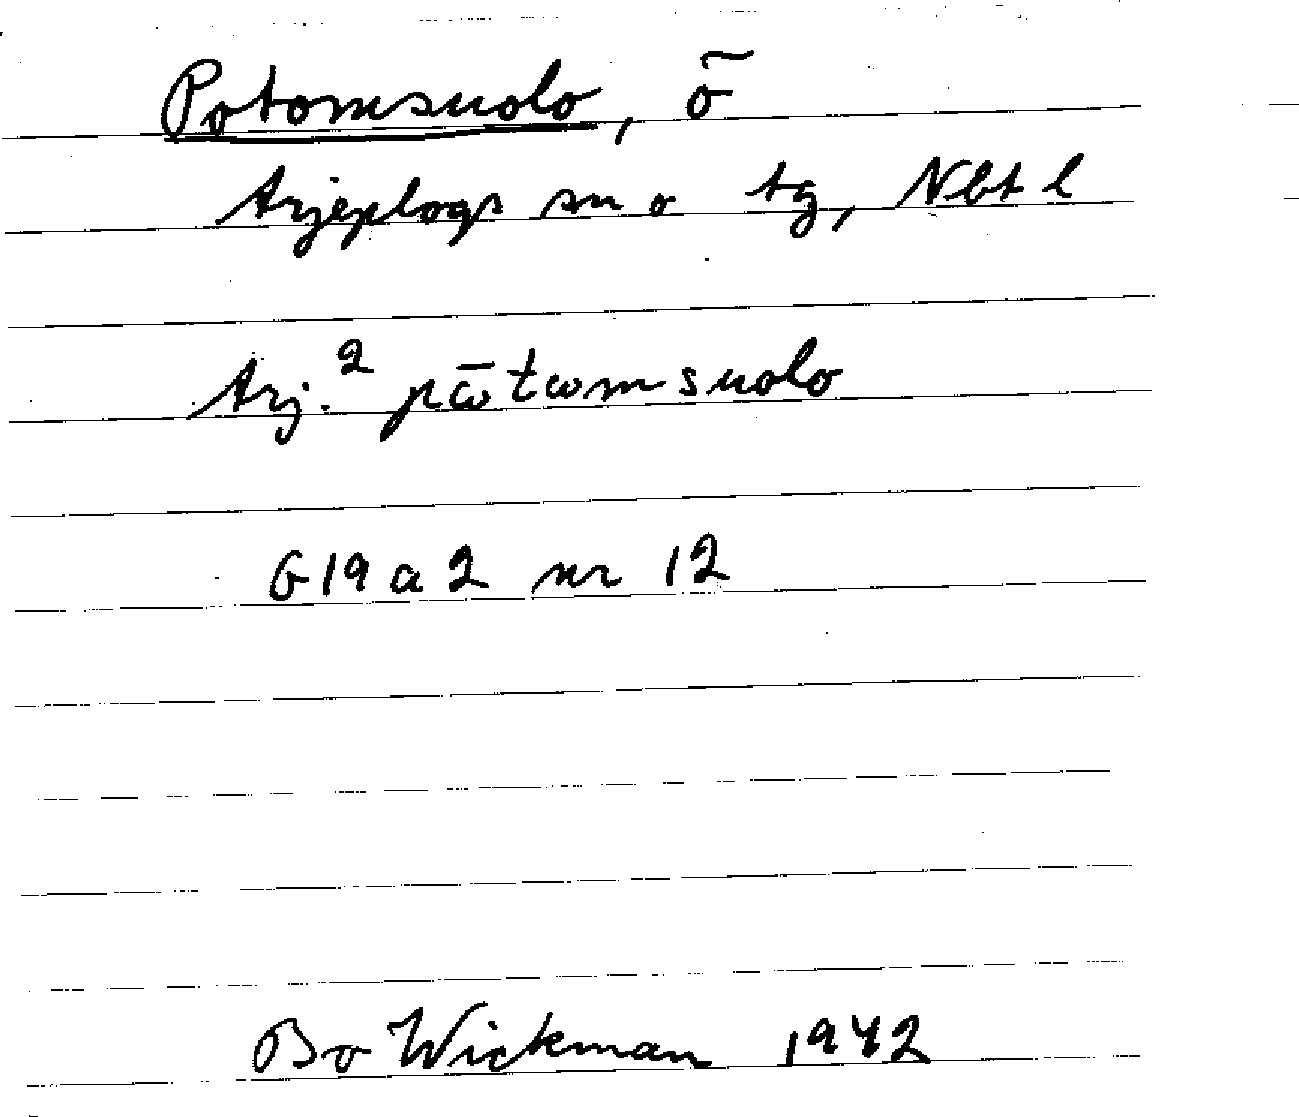 Potomsuolo, ö
Arjeplogs sn o tg, Nbt l
Arj.² pω̄tωmsuolo
G19a2 nr 12
Bo Wickman 1942